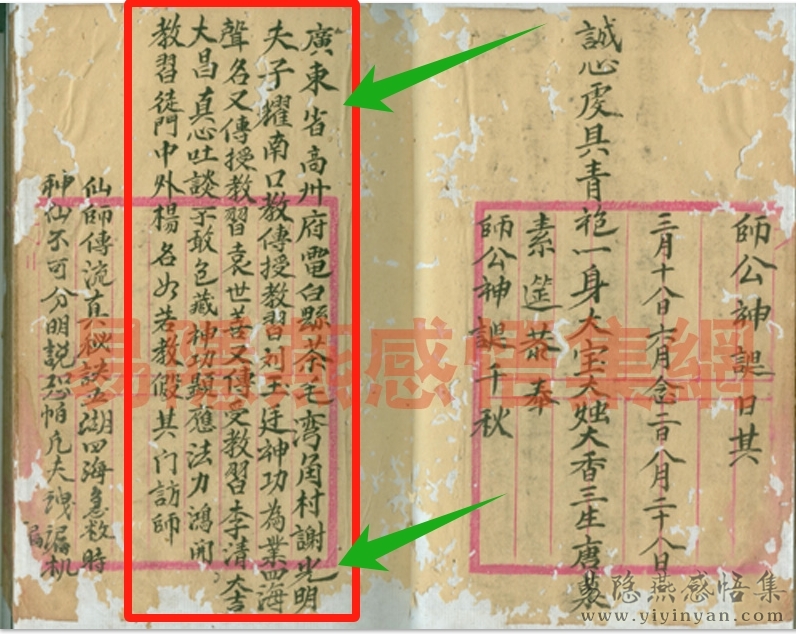 師公神誕日其
三月十八日六月念二日八月二十八日
誠心虔具青袍一身大宝大烛大香三生唐菓
素筵恭奉
師公神誕千秋
廣東省高州府電白縣茶毛湾角村謝光明
夫子耀南口教傳授教習刘玉廷神功為業四海
聲名又傳授教習袁世善又傳受教習李清大吉
大昌真心吐談不敢包藏神功顯應法力鴻開
教習徒門中外楊名如若教假其门訪師
仙師傳流真秘訣五湖四海急救時
神仙不可分明説恐怕凡夫洩漏机
漏
易隱燕感悟集網
隐燕感悟集
www.yiyinyan.com